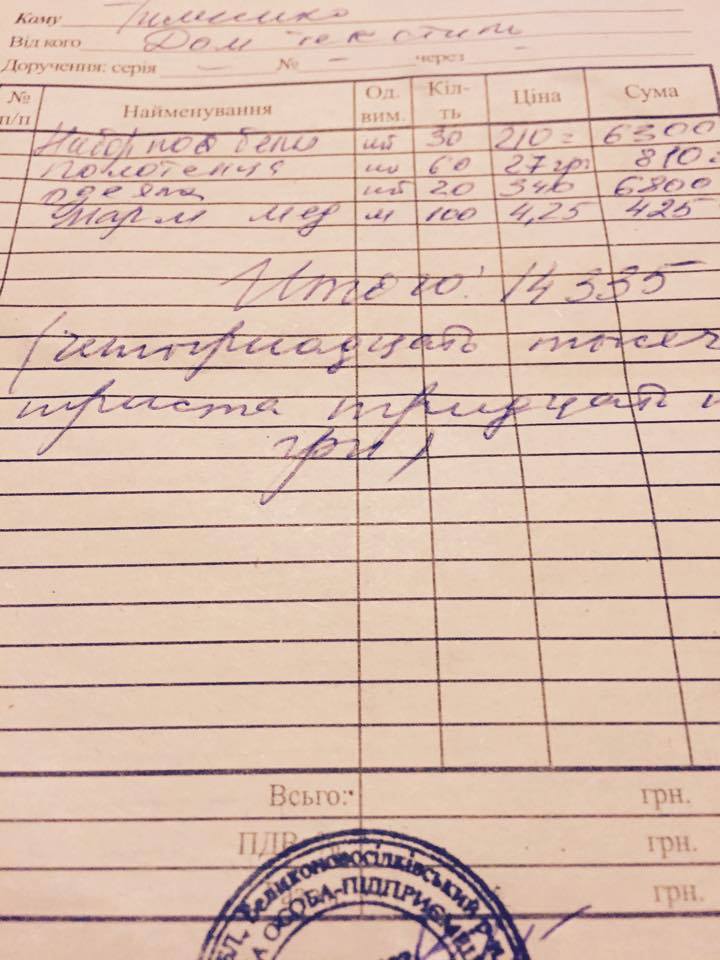 Кому
Від кого Дом текстит
Доручення: серія — № — через —
№ п/п Найменування Од. вим. Кіл-ть Ціна Сума
Набор пос бели шт 30 210= 6300
полотенца шт 60 27 грн 810=
одеяла шт 20 340 6800
Марля мед м 100 4,25 425
Итого: 14335
(четырнадцать тысяч
триста тридцать п
грн)
Всього: грн.
ПДВ грн.
грн.
Великоновосілківський
ОСОБА-ПІДПРИЄМ